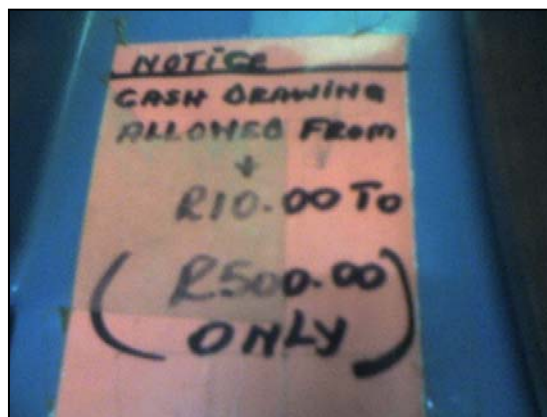 NOTICE
CASH DRAWING
ALLOWED FROM
R10.00 TO
(R500.00
ONLY)